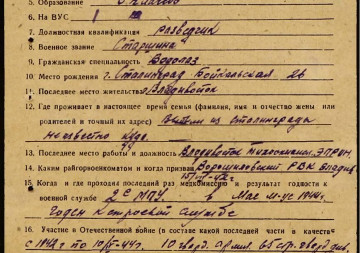 5. Образование
6. На ВУС
7. Должностная квалификация разведчик
8. Военное звание Старшина
9. Гражданская специальность Водолаз
10. Место рождения г. Сталинград 26
11. Последнее место жительства Владивосток
12. Где проживает в настоящее время семья (фамилия, имя и отчество жены или
родителей и точный их адрес) из Сталинграда
неизвестно куда.
13. Последнее место работы и должность Владивосток ЭПРОН
14. Каким райгорвоенкоматом и когда призван Ворошиловский РВК Владив
15. Когда и где проходил последний раз медкомиссию и результат годности к
военной службе в Мае м-це 1944г.
Годен к строевой службе
16. Участие в Отечественной войне (в составе какой последней части и в качестве
с 1942 г по 44г. 10 гвард. армия 65 стр. гвард. див.